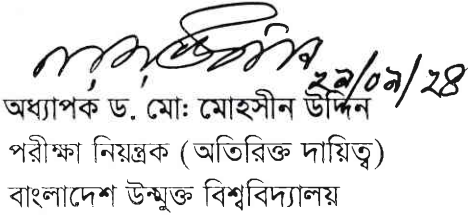 অধ্যাপক ড. মো: মোহসীন উদ্দিন
পরীক্ষা নিয়ন্ত্রক (অতিরিক্ত দায়িত্ব)
বাংলাদেশ উন্মুক্ত বিশ্ববিদ্যালয়